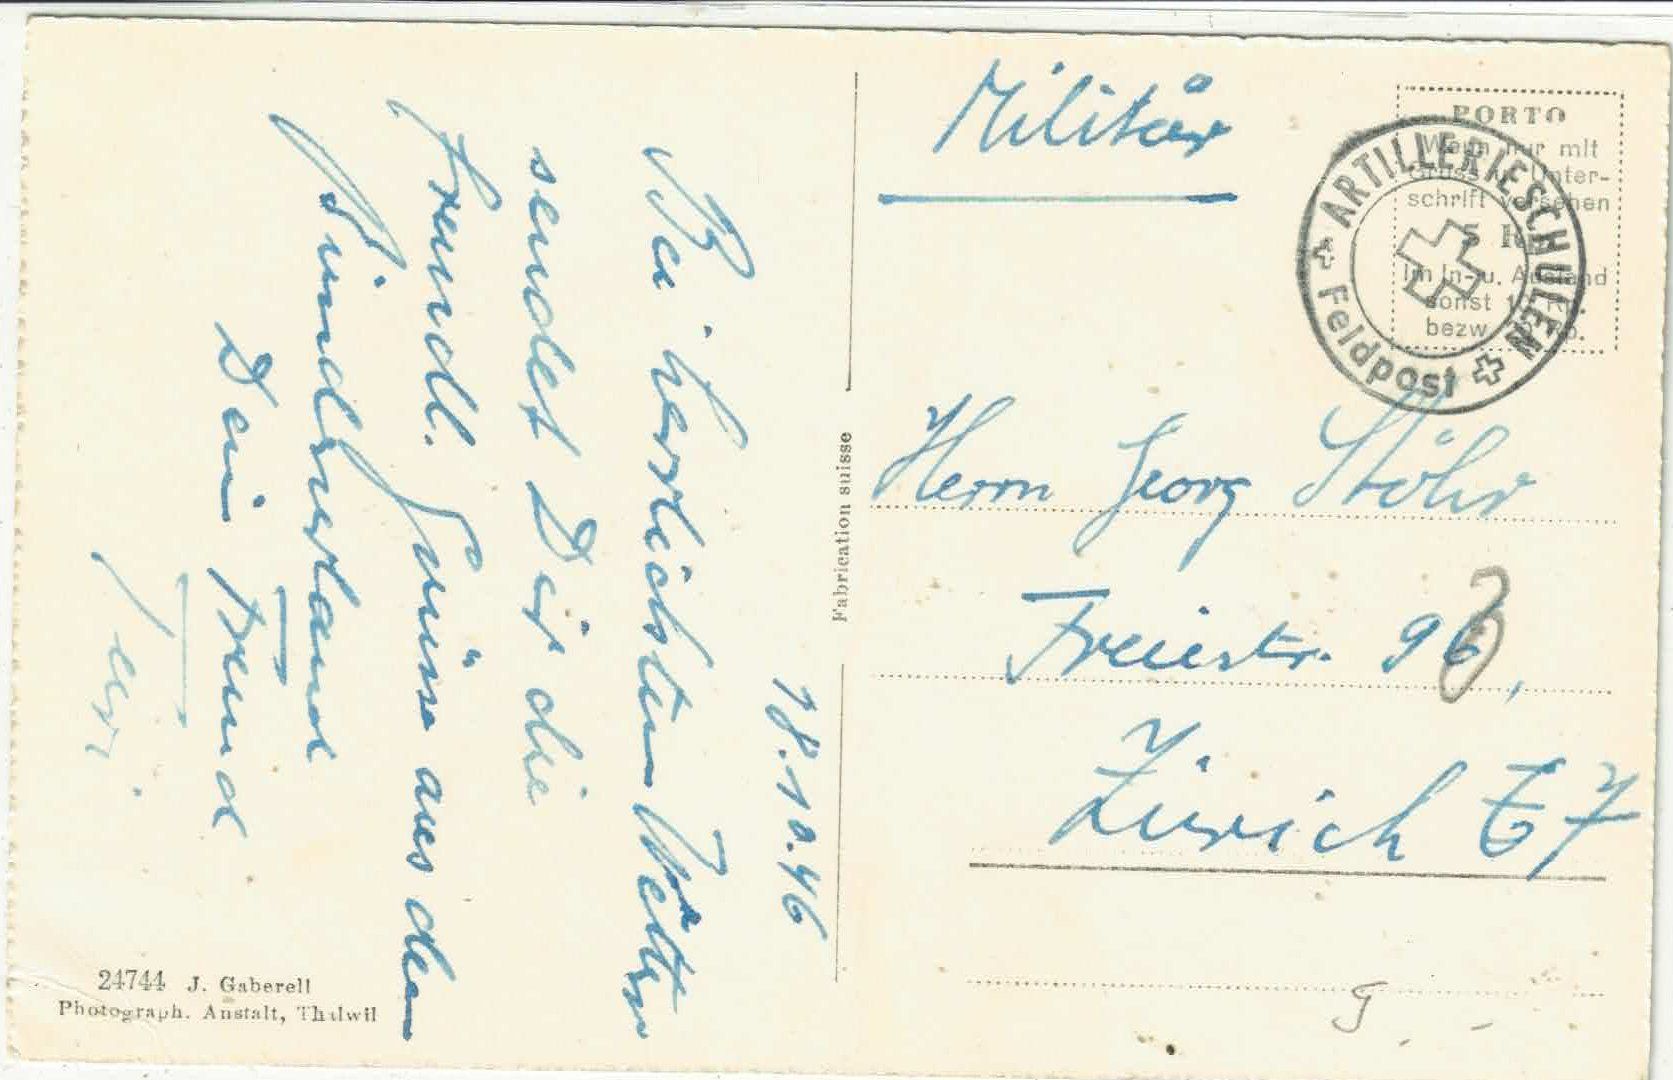 18.10.46
Bei herrlichstem Wetter
sendet Dir die
freundl. Grüsse aus dem
Bündnerland
Dein Freund
24744 J. Gaberell
Photograph. Anstalt, Thalwil
Fabrication suisse
Militär
PORTO
Wenn nur mit
Gruss u. Unter-
schrift versehen
5 Rp.
Im In- u. Ausland
sonst
bezw.
ARTILLERIESCHULEN
Feldpost
Herrn Georg Stöhr
Freiestr. 96,
Zürich 7